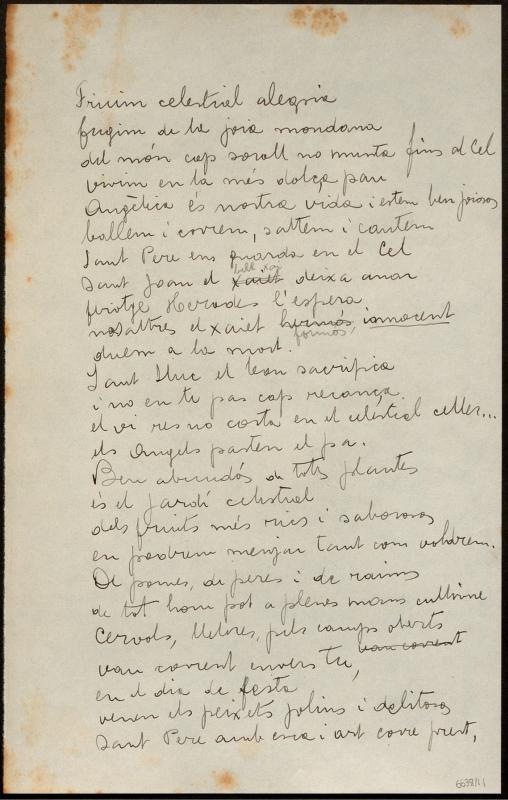 Fruim celestial alegria
fugim de la joia mondana
del món cap soroll no munta fins al Cel
vivim en la més dolça pau
Angèlica és nostra vida i estem ben joiosos
ballem i correm, saltem i cantem
Sant Pere ens guarda en el Cel
bell xai
Sant Joan el xaiet deixa anar
feriotge Herodes l'espera
nosaltres el xaiet hermós, innocent
formós,
duem a la mort.
Sant Lluc el bou sacrifica
i no en té pas cap recança.
el vi res no costa en el celestial celler...
els Angels pasten el pa.
Ben abundós de tots plantes
és el jardí celestial
dels fruits més rics i saborosos
en podrem menjar tant com voldrem.
De pomes, de peres i de raims
de tot hom pot a plenes mans cullirne
Cervols, llebres, pels camps oberts
van corrent envers tu, van corrent
en el dia de festa
venen els peixets jolius i delitosos
Sant Pere amb esca i art corre prest,
6638/11